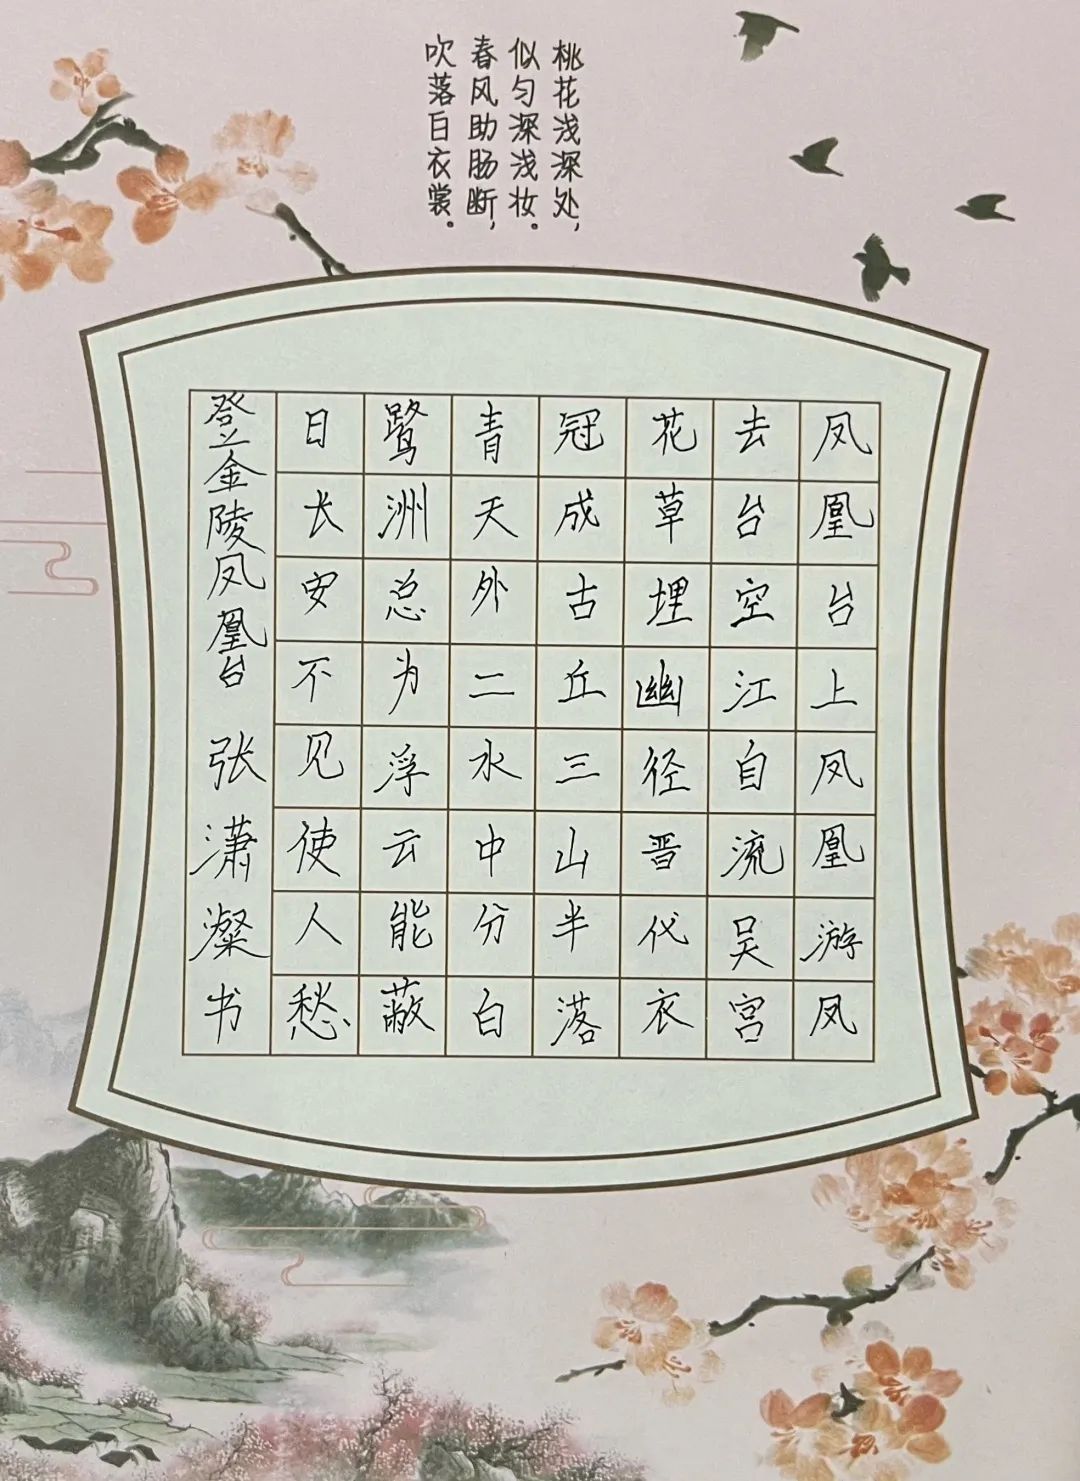 桃花浅深处,
似匀深浅妆.
春风助肠断,
吹落白衣裳.
凤凰台上凤凰游凤
去台空江自流吴宫
花草埋幽径晋代衣
冠成古丘三山半落
青天外二水中分白
鹭洲总为浮云能蔽
日长安不见使人愁
登金陵凤凰台 张潇澯书